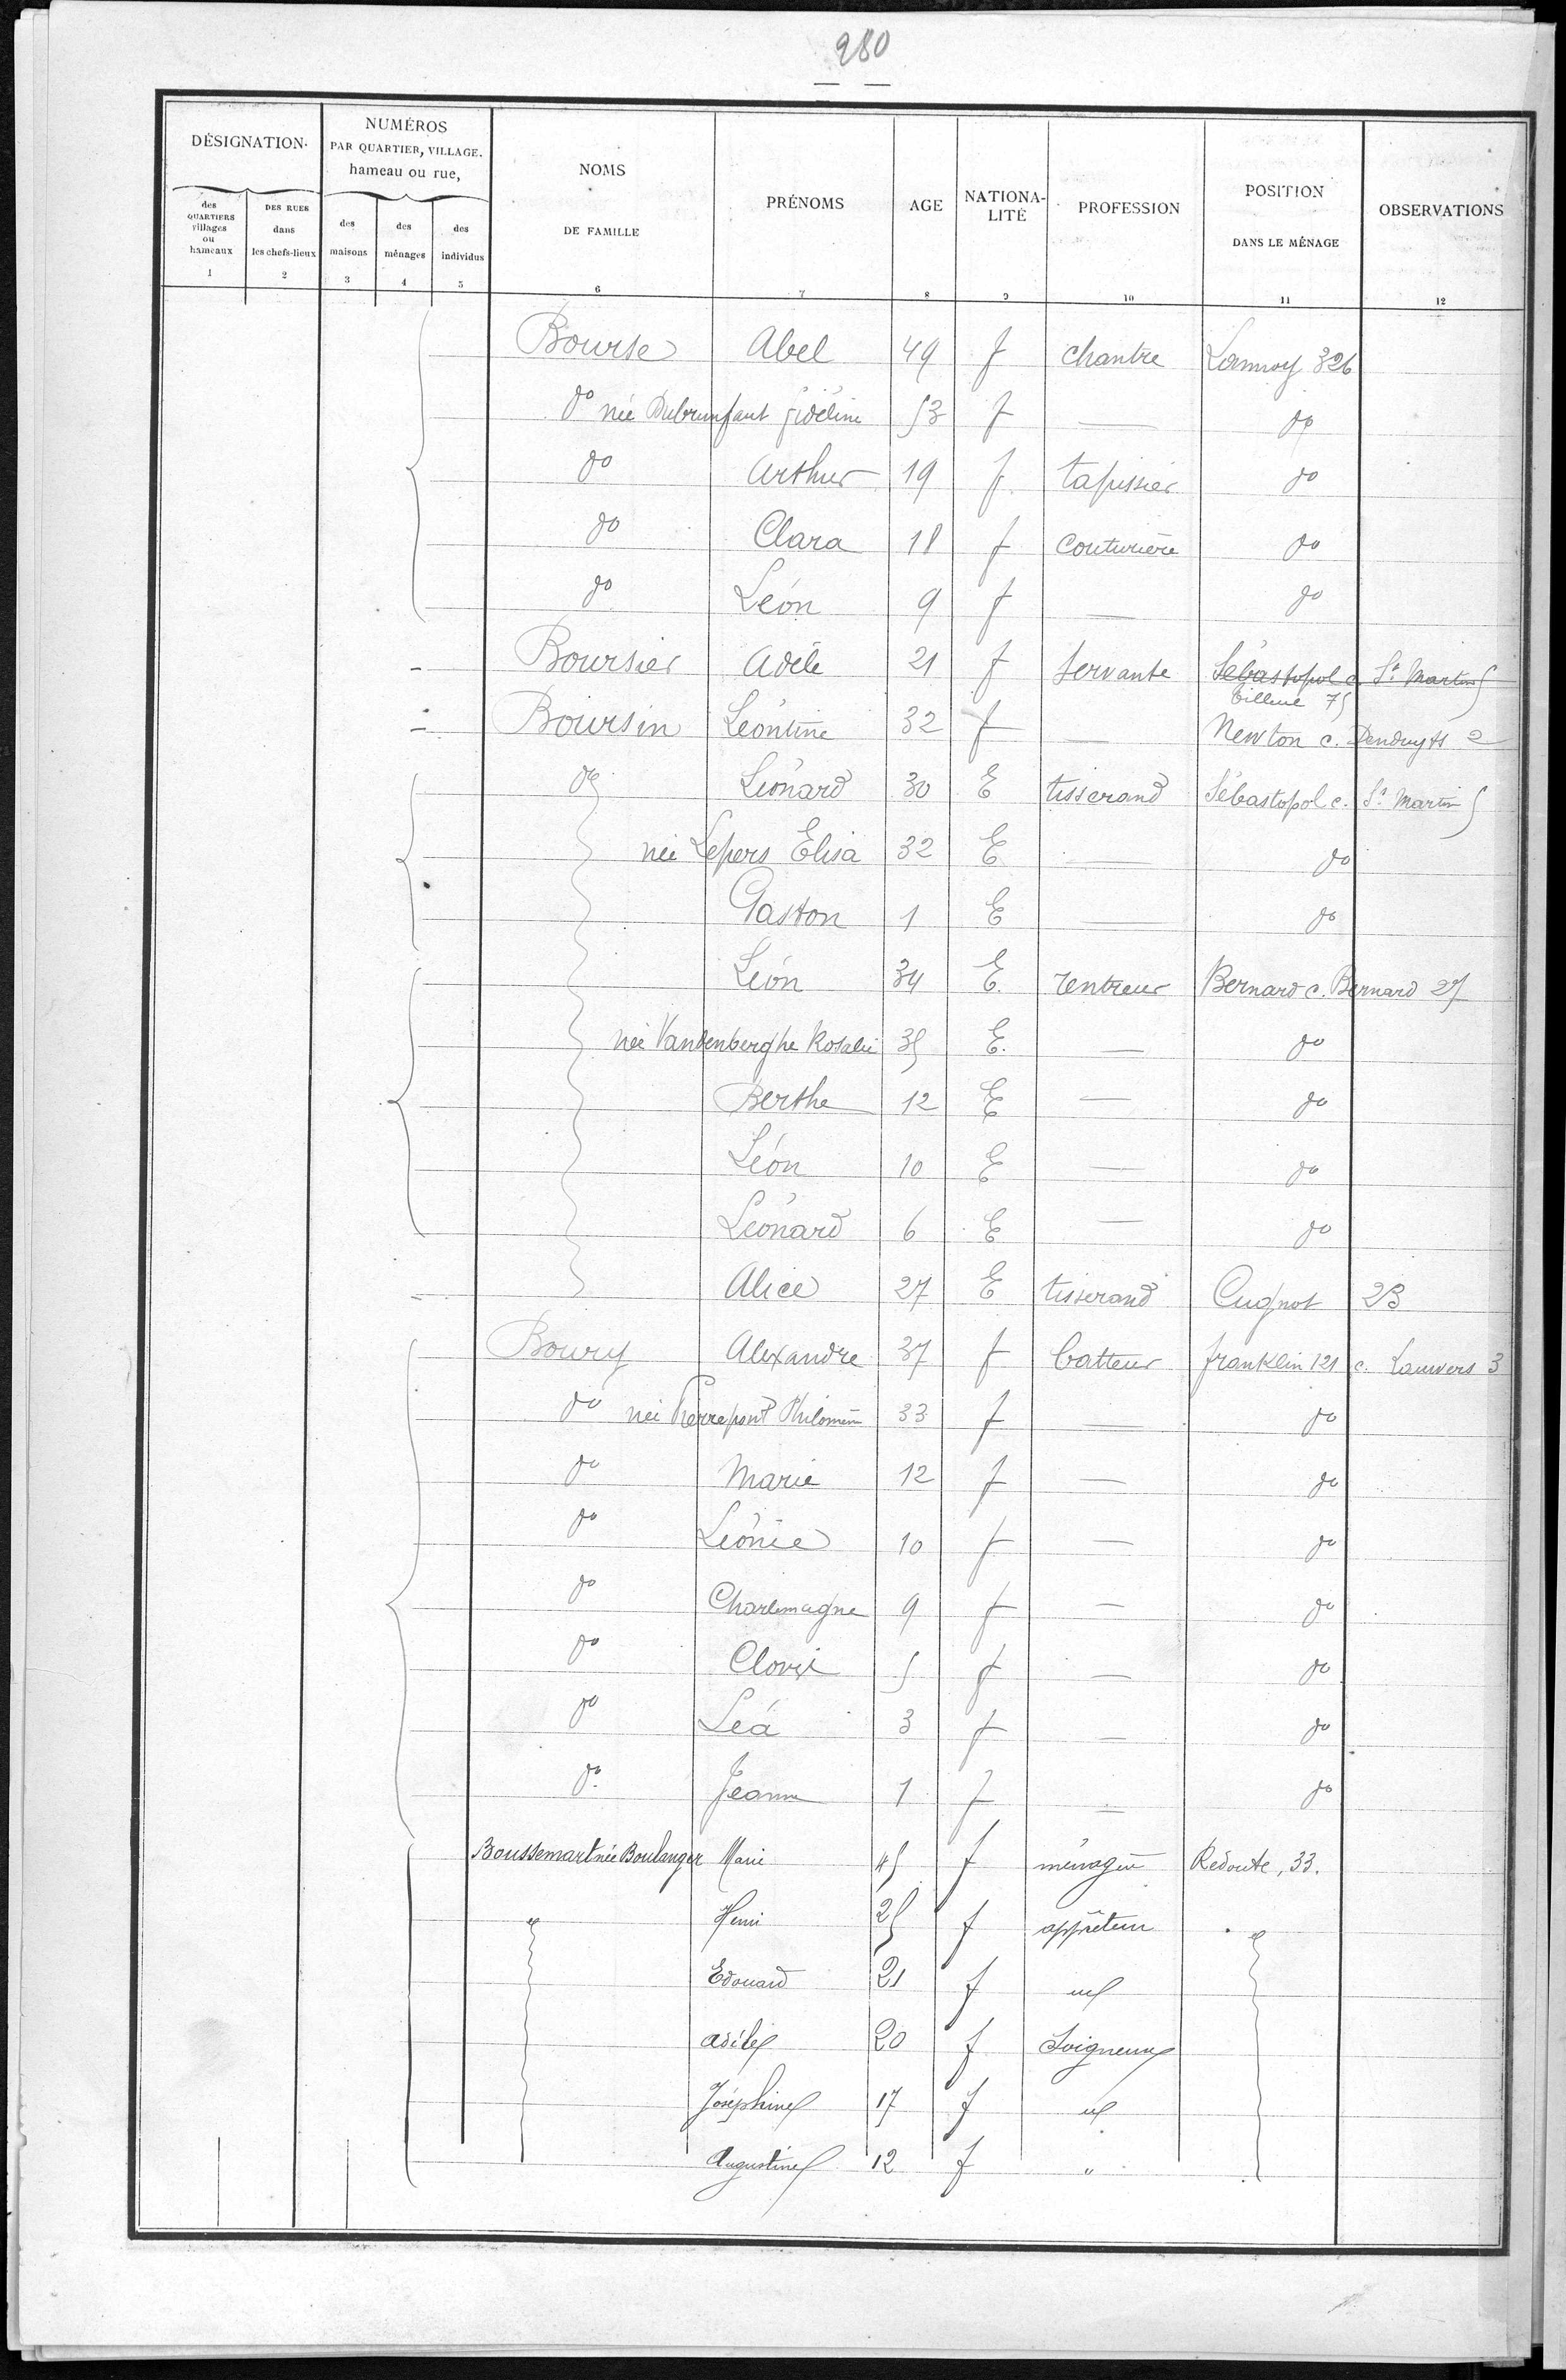 280
DÉSIGNATION
NUMÉROS
PAR QUARTIER, VILLAGE,
hameau ou rue,
NOMS
DE FAMILLE
PRÉNOMS
AGE
NATIONA-
LITÉ
PROFESSION
POSITION
DANS LE MÉNAGE
OBSERVATIONS
des
QUARTIERS
villages
ou
hameaux
DES RUES
dans
les chefs-lieux
des
maisons
des
ménages
des
individus
1 2 3 4 5 6 7 8 9 10 11 12
Bourse Abel 49 f chantre Lannoy 326
do née Dubrunfaut fidéline 53 f — do
do Arthur 19 f tapissier do
do Clara 18 f couturière do
do Léon 9 f — do
Boursier Adèle 21 f servante Sébastopol c. St Martin 5
Tilleul 75
Boursin Léontine 32 f — Newton c. Denduyts 2
do Léonard 30 E tisserand Sébastopol c. St Martin 5
née Lepers Elisa 32 E — do
Gaston 1 E — do
Léon 34 E. rentreur Bernard c. Bernard 27
née Vandenberghe Rosalie 35 E. — do
Berthe 12 E — do
Léon 10 E — do
Léonard 6 E — do
Alice 27 E tisserand Cugnot 23
Boury Alexandre 37 f batteur franklin 121 c. Lauwers 3
do née Pierrepont Philomène 33 f — do
do Marie 12 f — do
do Léonie 10 f — do
do Charlemagne 9 f — do
do Clovis 5 f — do
do Léa 3 f — do
do Jeanne 1 f — do
Boussemart née Boulanger Marie 45 f ménagère Redoute, 33.
Henri 25 f apprêteur
Edouard 21 f
Adèle 20 f Soigneuse
Joséphine 17 f
Augustine 12 f "